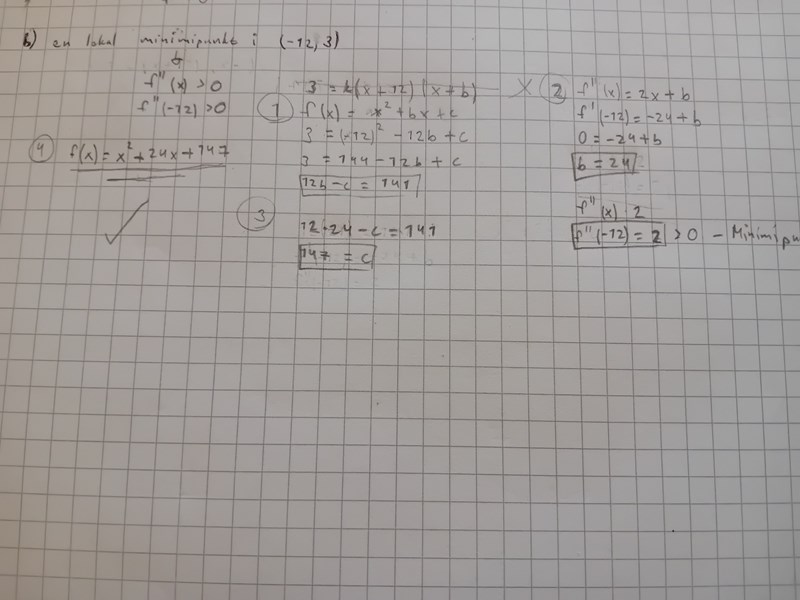 b) en lokal minimipunkt i (-12, 3)
f''(x) > 0
f''(-12) > 0
4 f(x) = x² + 24x + 147
3 = k(x + 12)(x + b)
1 f(x) = x² + bx + c
3 = (-12)² - 12b + c
3 = 144 - 12b + c
12b - c = 141
3
12·24 - c = 141
147 = c
X 2 f''(x) = 2x + b
f'(-12) = -24 + b
0 = -24 + b
b = 24
f''(x) 2
f''(-12) = 2 > 0 - Minimipu